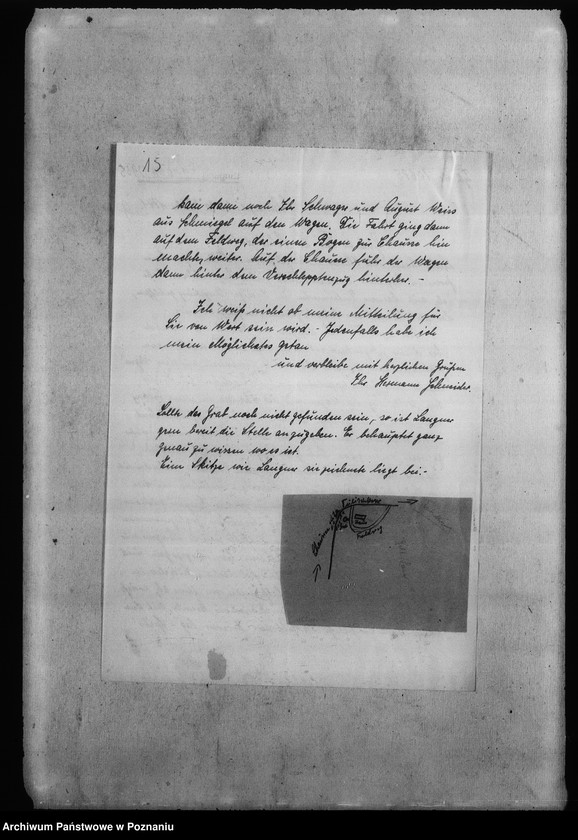 15
kam dann noch Ihr Schwager und August Weiss
aus Schmiegel auf den Wagen. Die Fahrt ging dann
auf dem Feldweg, der einen Bogen zur Chausse hin
machte, weiter. Auf der Chausse fuhr der Wagen
dann hinter dem Verschlepptenzug hinterher. –
Ich weiß nicht ob meine Mitteilung für
Sie von Wert sein wird. – Jedenfalls habe ich
mein Möglichstes getan
und verbleibe mit herzlichen Grüßen
Ihr Hermann Schneider.
Sollte das Grab noch nicht gefunden sein, so ist Langner
gern bereit die Stelle anzugeben. Er behauptet ganz
genau zu wissen wo es ist.
Eine Skitze wie Langner sie zeichnete liegt bei. –
Feldweg
Archiwum Państwowe w Poznaniu